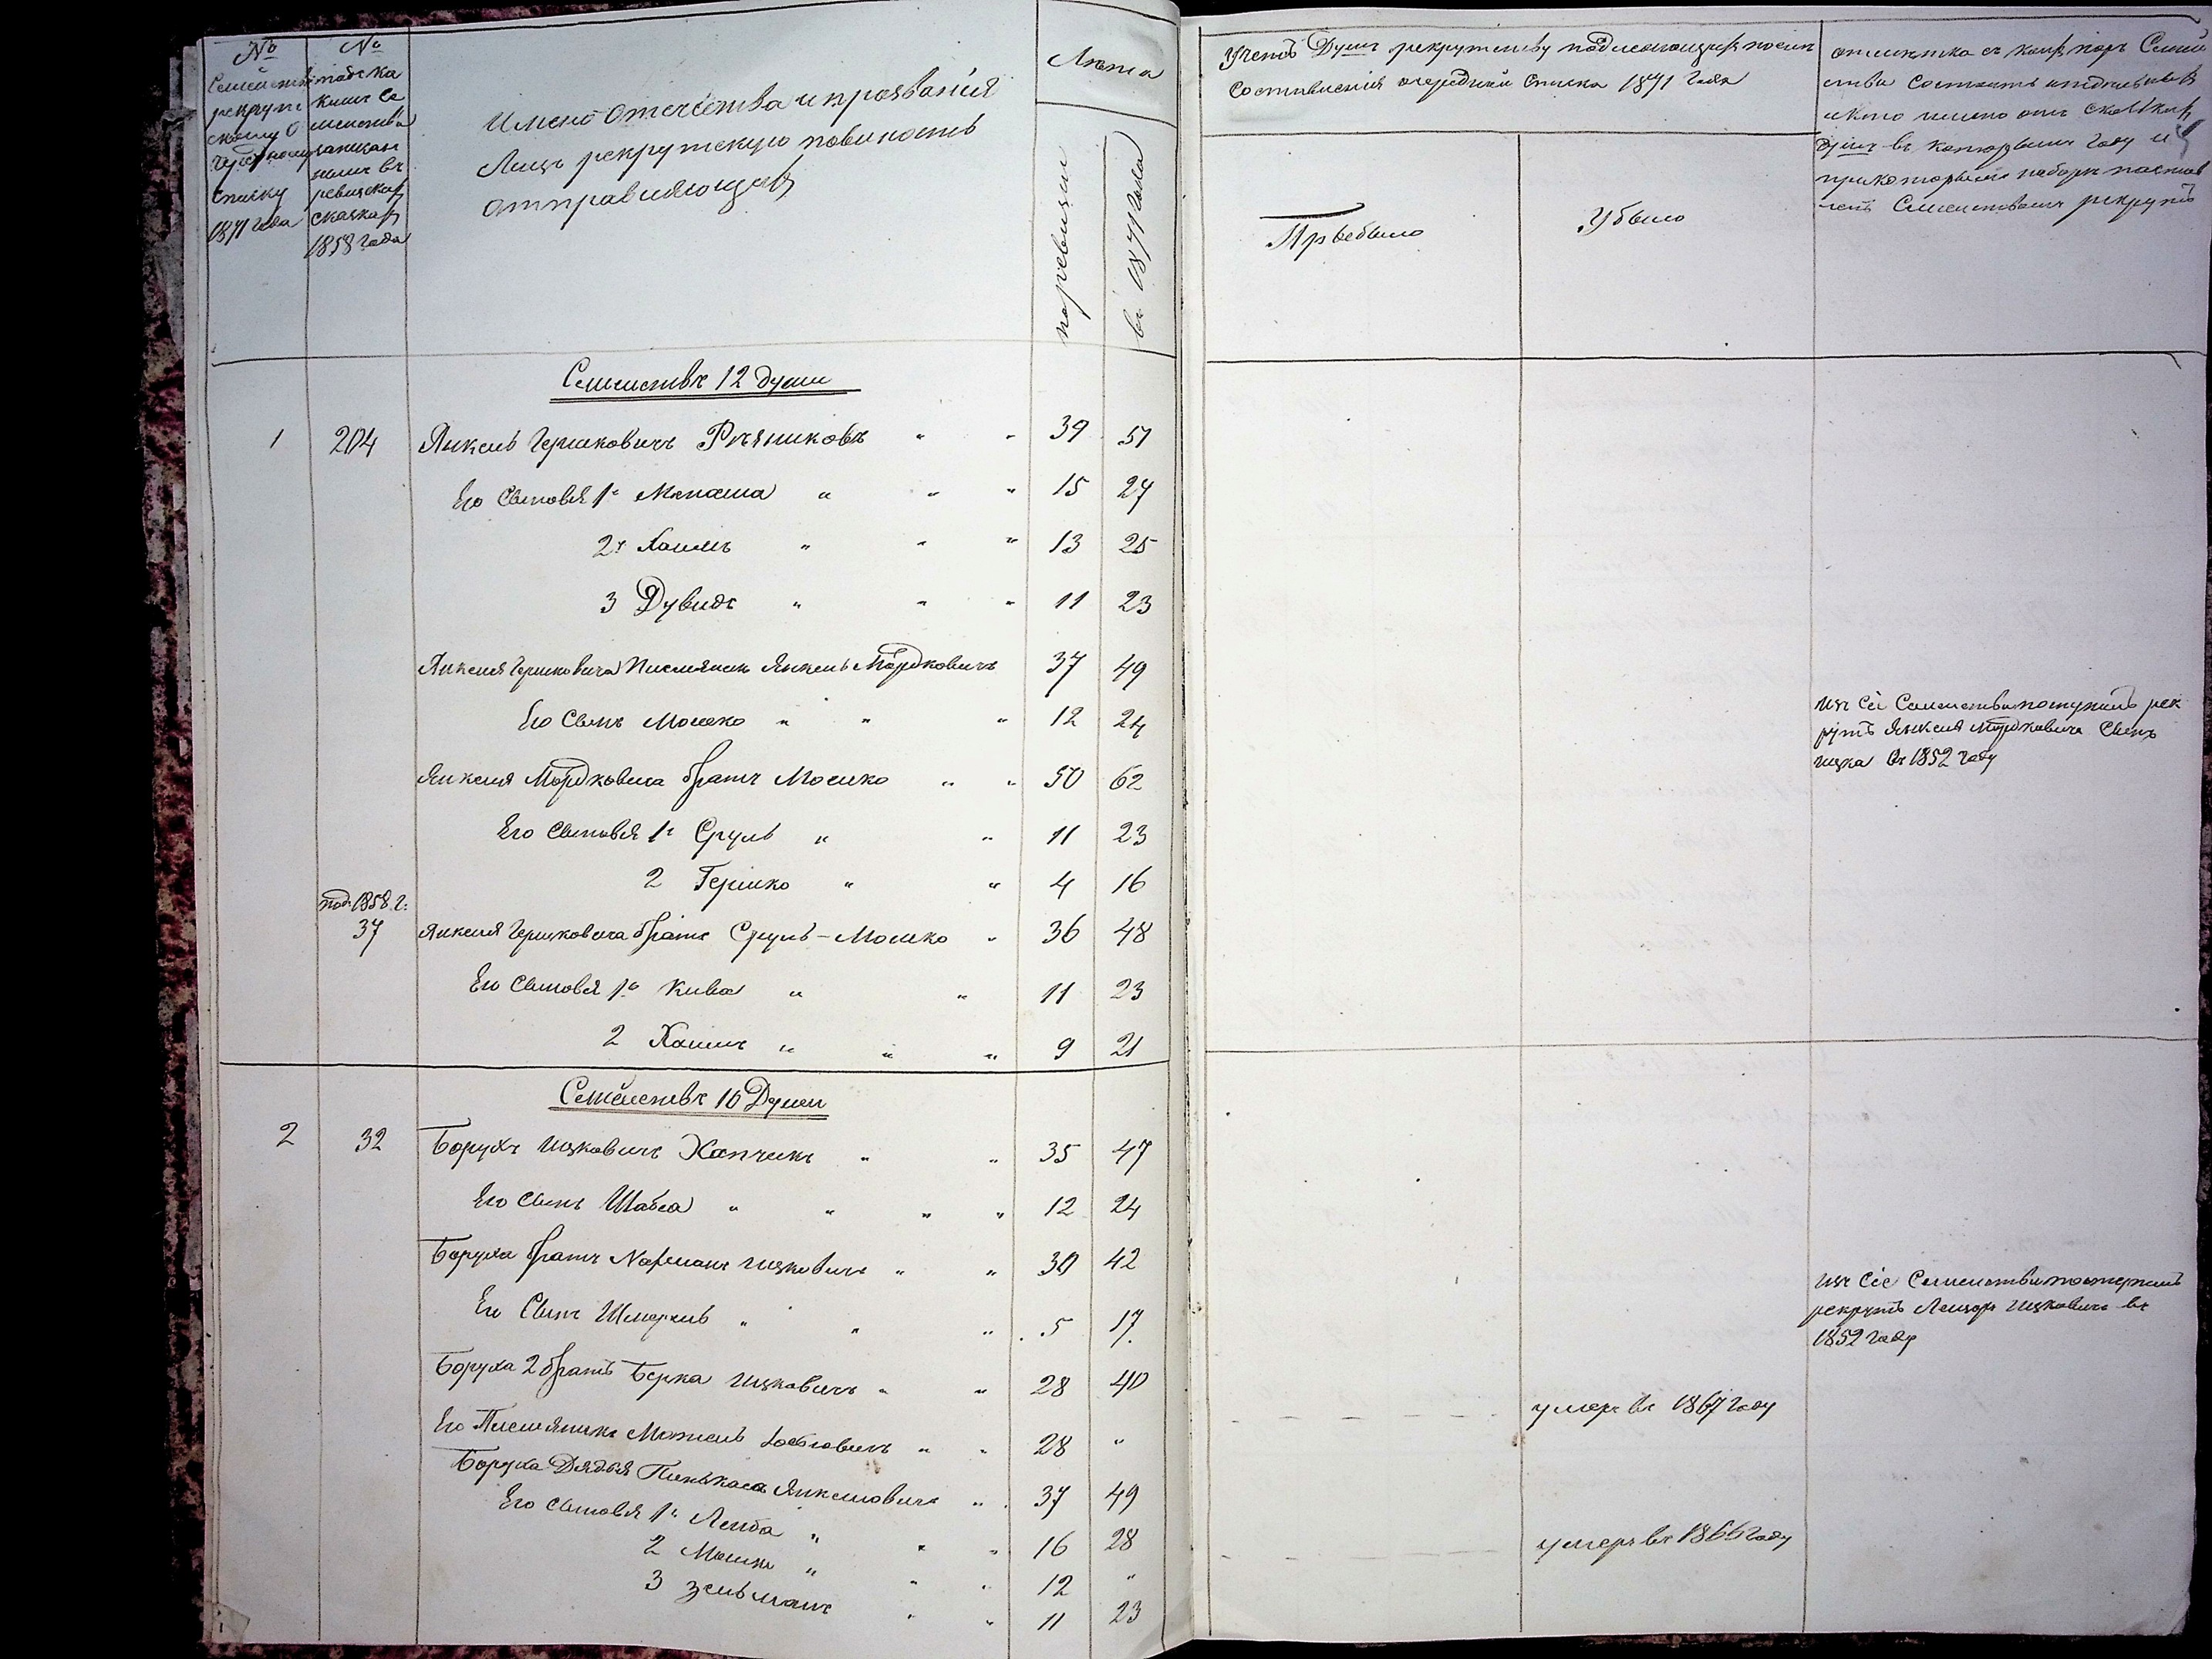 №
Семейства
рекрут
скому о
чередному
списку
1871 года
№
подъ ка
кимъ се
мейства
записан
нымъ въ
ревизских
сказках
1858 года
Имена Отечества и прозвания
Лицъ рекрутскую повиность
отправляющих
Лѣта
по ревизии
въ 1871 года
Семействе 12 души
1 204 Янкель Гершковичъ Рѣзниковъ " " 39 51
Его Сыновья 1й Манаша " " " 15 27
2й Хаимъ " " " 13 25
3 Дувидъ " " " 11 23
Янкеля Гершковича Племяник Янкель Мордковичъ 37 49
Его Сынъ Мошко " " " 12 24
Янкеля Мордковича братъ Мошко " " 50 62
Его Сыновья 1й Сруль " " 11 23
2 Гершко " " 4 16
под. 1858 г.
37 Янкеля Гершковича братъ Сруль-Мошко " 36 48
Его Сыновья 1й Кива " " 11 23
2 Хаимъ " " " 9 21
Семействе 10 Души
2 32 Борухъ Ицковичъ Хапчикъ " " 35 47
Его Сынъ Шабса " " " " 12 24
Боруха братъ Нахманъ Ицковичъ " " 30 42
Его Сынъ Шмерель " " " 5 17
Боруха 2 братъ Берка Ицковичъ " " 28 40
Его Племяникъ Мотель " " 28 "
Боруха Дядья Пинькасъ Янкелевичъ " " 37 49
Его Сыновья 1й Лейба " " " 16 28
2 Мошко " " " 12 "
3 Зельманъ " " 11 23
Учетъ Душъ рекрутству подлежащих после
Составления очередной Списка 1871 Года
Прибыло
Убыло
отметка съ каких поръ Семей
ства состоитъ
скольких
душъ въ котором году и
при котором наборе постав
ленъ Семейством рекрутъ
Изъ Сей Семейства поступилъ рек
рутъ Янкеля Мордковича Сынъ
Ицка въ 1852 году
Изъ Сей Семейства поступилъ
рекрутъ Лейзоръ Ицковичъ въ
1852 году
умеръ въ 1867 году
умеръ въ 1866 году